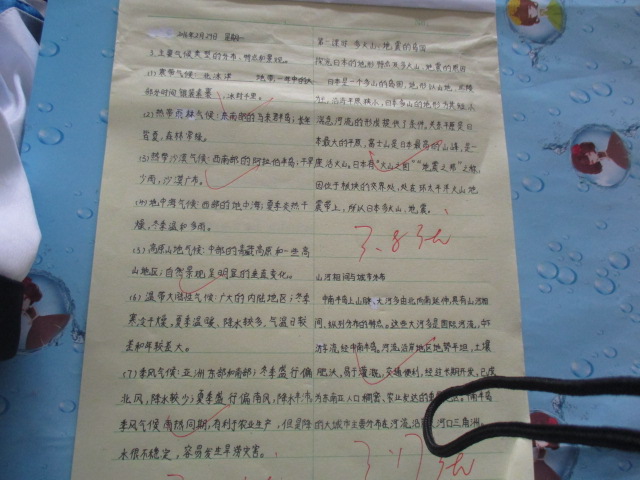 2016年2月29日 星期一
3.主要气候类型的分布、特点和景观。
(1)寒带气候:北冰洋 地带,一年中的大
部分时间银装素裹,冰封千里。
(2)热带雨林气候:东南部的马来群岛;长年
皆夏,森林常绿。
(3)热带沙漠气候:西南部的阿拉伯半岛;干旱
少雨,沙漠广布。
(4)地中海气候:西部的地中海;夏季炎热干
燥,冬季温和多雨。
(5)高原山地气候:中部的青藏高原和一些高
山地区;自然景观呈明显的垂直变化。
(6)温带大陆性气候:广大的内陆地区;冬季
寒冷干燥,夏季温暖、降水较多,气温日较
差和年较差大。
(7)季风气候:亚洲东部和南部;冬季盛行偏
北风,降水较少;夏季盛行偏南风,降水丰沛
季风气候雨热同期,有利于农业生产,但是降
水很不稳定,容易发生旱涝灾害。
第一课时 多火山、地震的岛国
探究日本的地形特点及多火山、地震的原因
日本是一个多山的岛国,地形以山地、丘陵
为主,沿海平原狭小,日本多山的地形为其
湍急河流的形成提供了条件。关东平原是日
本最大的平原,富士山是日本最高的山峰,是一
座活火山。日本有"火山之国""地震之邦"之称,
因位于板块的交界处,处在环太平洋火山地
震带上,所以日本多火山、地震。
3.8
山河相间与城市分布
中南半岛上山脉、大河多由北向南延伸,具有山河相
间、纵列分布的特点。这些大河多是国际河流,
流经中南半岛。河流沿岸地区地势平坦,土壤
肥沃,易于灌溉,交通便利,经过长期开发,已成
为东南亚人口稠密、农业发达的 中南半岛
的大城市主要分布在河流沿岸 河口三角洲。
3.17